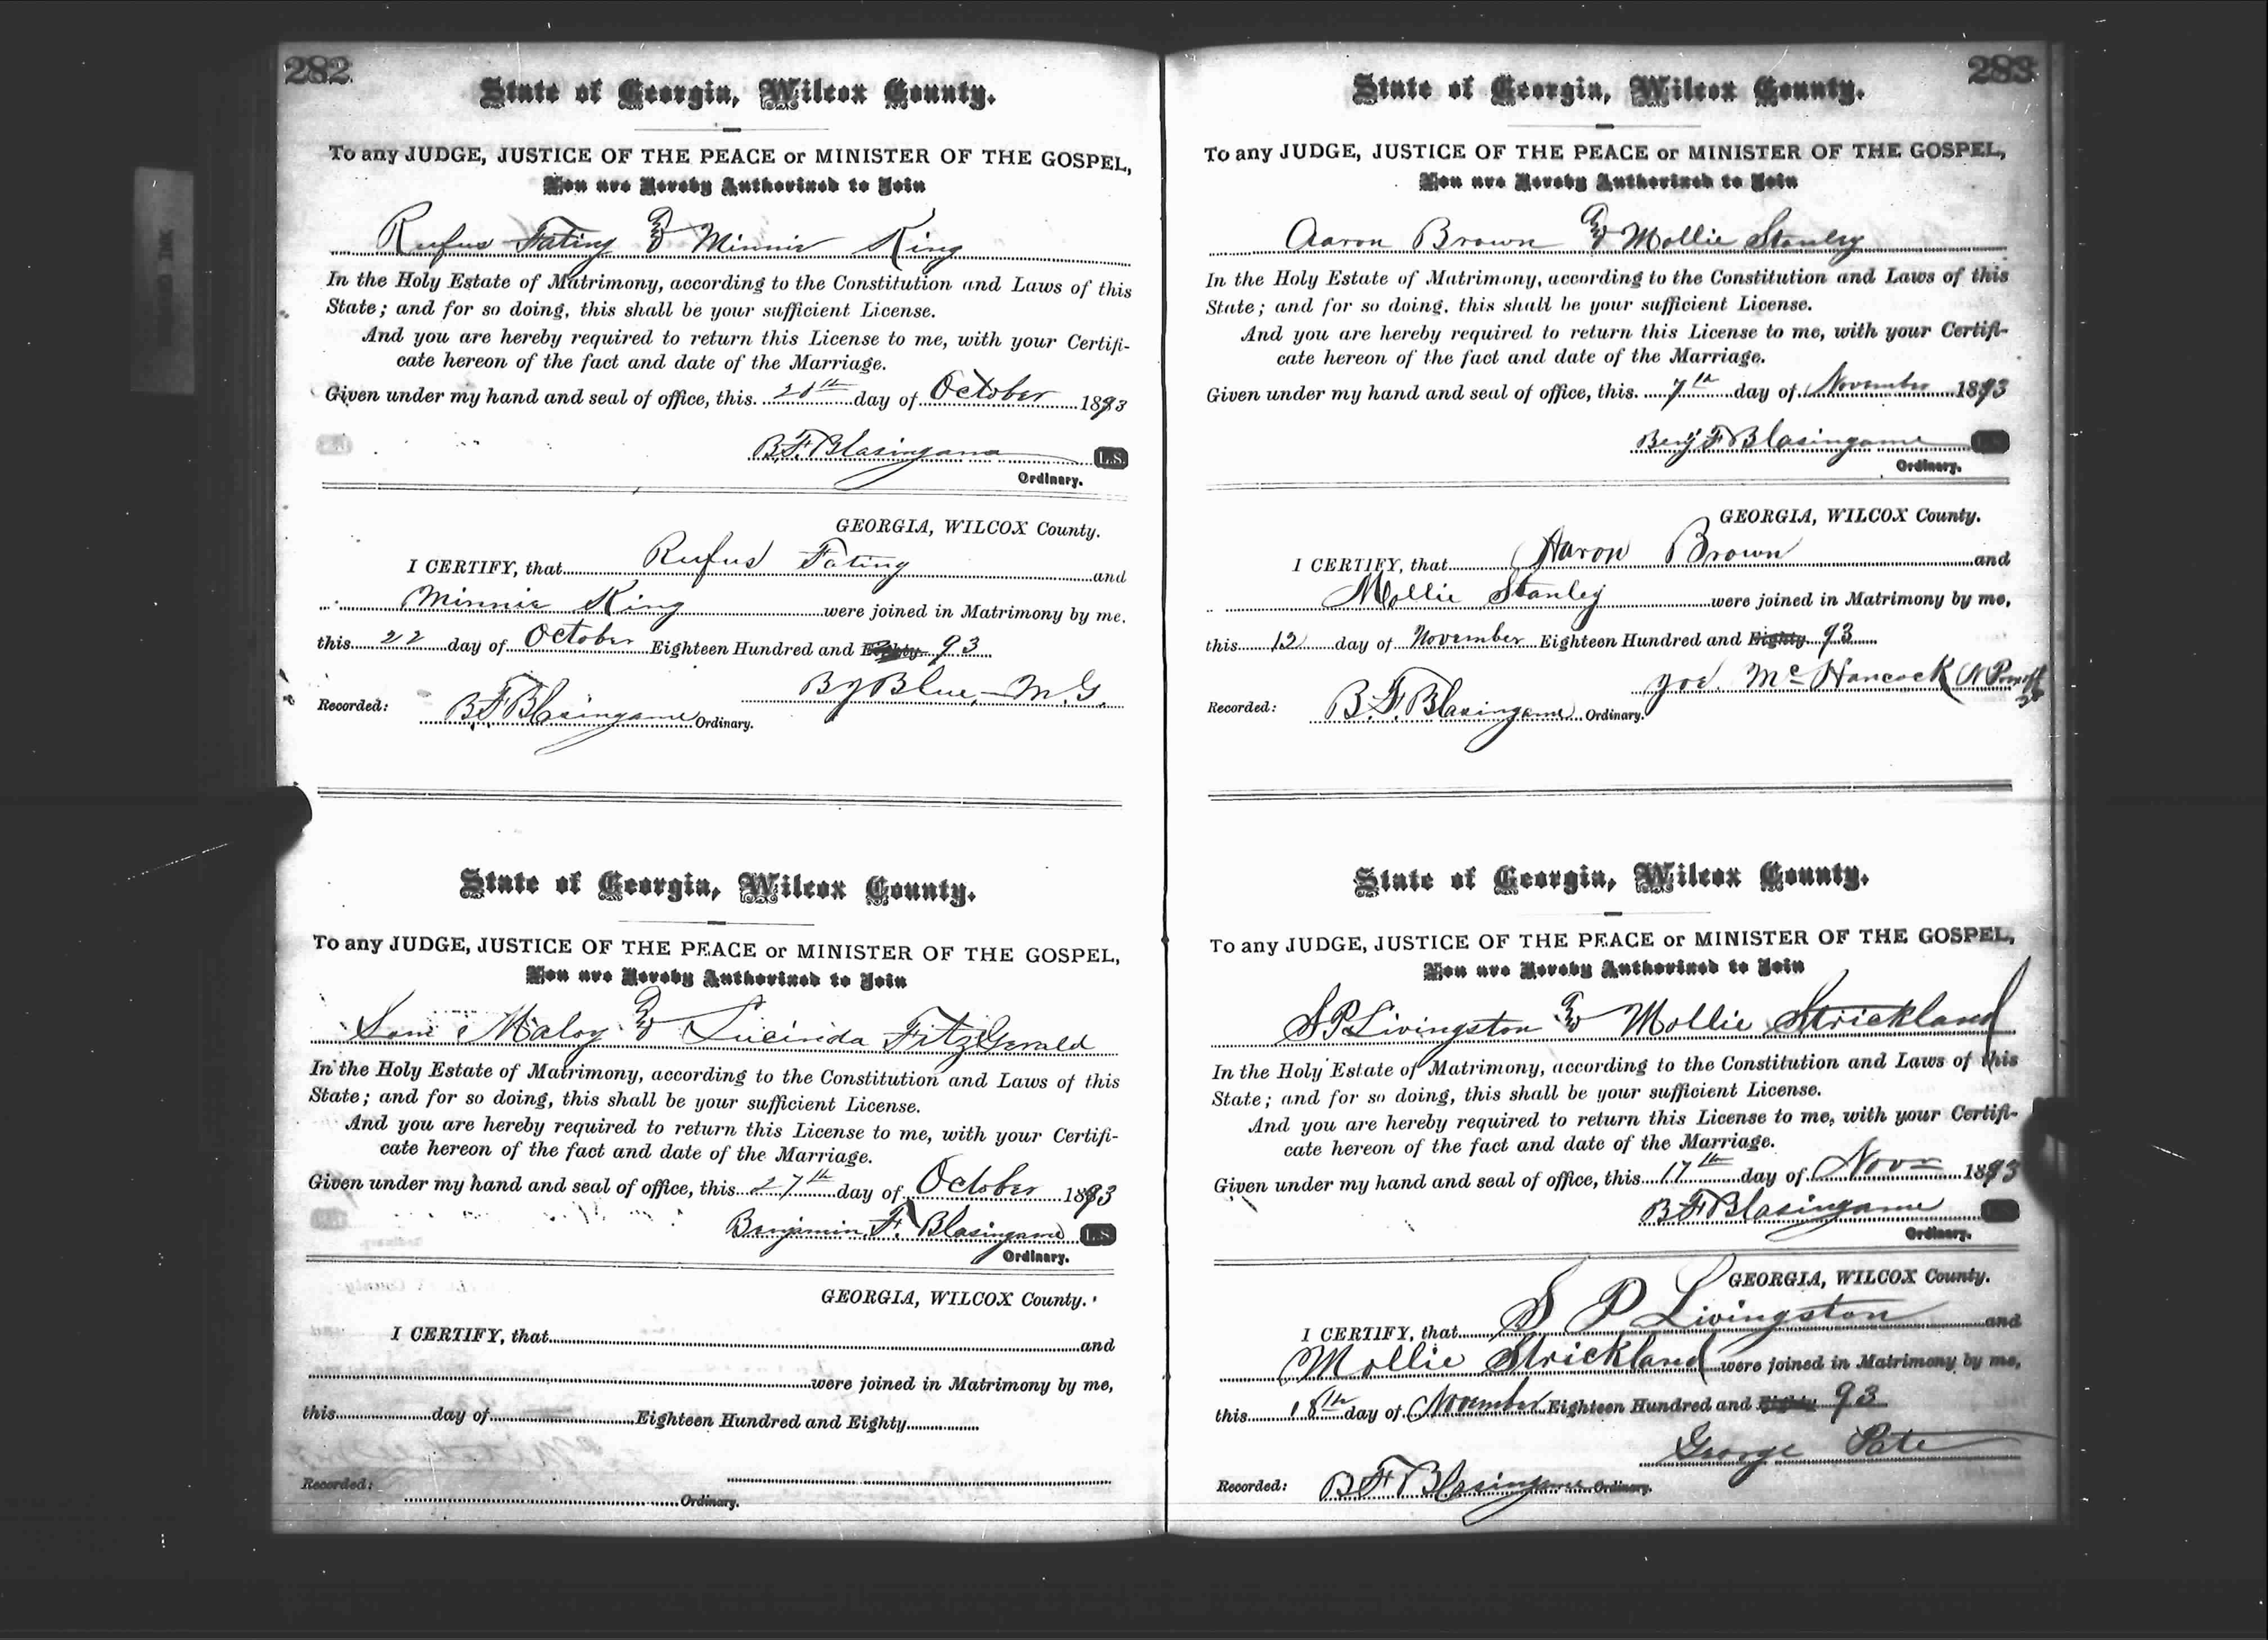 282
State of Georgia, Wilcox County.
To any JUDGE, JUSTICE OF THE PEACE or MINISTER OF THE GOSPEL,
You are Hereby Authorized to Join
Rufus Fating & Minnie King
In the Holy Estate of Matrimony, according to the Constitution and Laws of this
State; and for so doing, this shall be your sufficient License.
And you are hereby required to return this License to me, with your Certifi-
cate hereon of the fact and date of the Marriage.
Given under my hand and seal of office, this day of October 1893
B.F. Blasingame L.S.
Ordinary.
GEORGIA, WILCOX County.
I CERTIFY, that Rufus Fating and
Minnie King were joined in Matrimony by me.
this 22 day of October Eighteen Hundred and Eighty 93
B J Blue, M.G.
Recorded: B.F. Blasingame Ordinary.
State of Georgia, Wilcox County.
To any JUDGE, JUSTICE OF THE PEACE or MINISTER OF THE GOSPEL,
You are Hereby Authorized to Join
Sam Maloy & Lucinda FitzGerald
In the Holy Estate of Matrimony, according to the Constitution and Laws of this
State; and for so doing, this shall be your sufficient License.
And you are hereby required to return this License to me, with your Certifi-
cate hereon of the fact and date of the Marriage.
Given under my hand and seal of office, this 27th day of October 1893
Benjamin F. Blasingame L.S.
Ordinary.
GEORGIA, WILCOX County.
I CERTIFY, that and
were joined in Matrimony by me,
this day of Eighteen Hundred and Eighty
Recorded:
Ordinary.
283
State of Georgia, Wilcox County.
To any JUDGE, JUSTICE OF THE PEACE or MINISTER OF THE GOSPEL,
You are Hereby Authorized to Join
Aaron Brown & Mollie Stanley
In the Holy Estate of Matrimony, according to the Constitution and Laws of this
State; and for so doing, this shall be your sufficient License.
And you are hereby required to return this License to me, with your Certifi-
cate hereon of the fact and date of the Marriage.
Given under my hand and seal of office, this 7th day of November 1893
Benj F Blasingame L.S.
Ordinary.
GEORGIA, WILCOX County.
I CERTIFY, that Aaron Brown and
Mollie Stanley were joined in Matrimony by me,
this 12 day of November Eighteen Hundred and Eighty 93
Joe Mc Hancock
Recorded: B.F. Blasingame Ordinary.
State of Georgia, Wilcox County.
To any JUDGE, JUSTICE OF THE PEACE or MINISTER OF THE GOSPEL,
You are Hereby Authorized to Join
S P Livingston & Mollie Strickland
In the Holy Estate of Matrimony, according to the Constitution and Laws of this
State; and for so doing, this shall be your sufficient License.
And you are hereby required to return this License to me, with your Certifi-
cate hereon of the fact and date of the Marriage.
Given under my hand and seal of office, this 17th day of Novr 1893
B F Blasingame L.S.
Ordinary.
GEORGIA, WILCOX County.
I CERTIFY, that S P Livingston and
Mollie Strickland were joined in Matrimony by me,
this 18th day of November Eighteen Hundred and Eighty 93
George Pate
Recorded: B F Blasingame Ordinary.